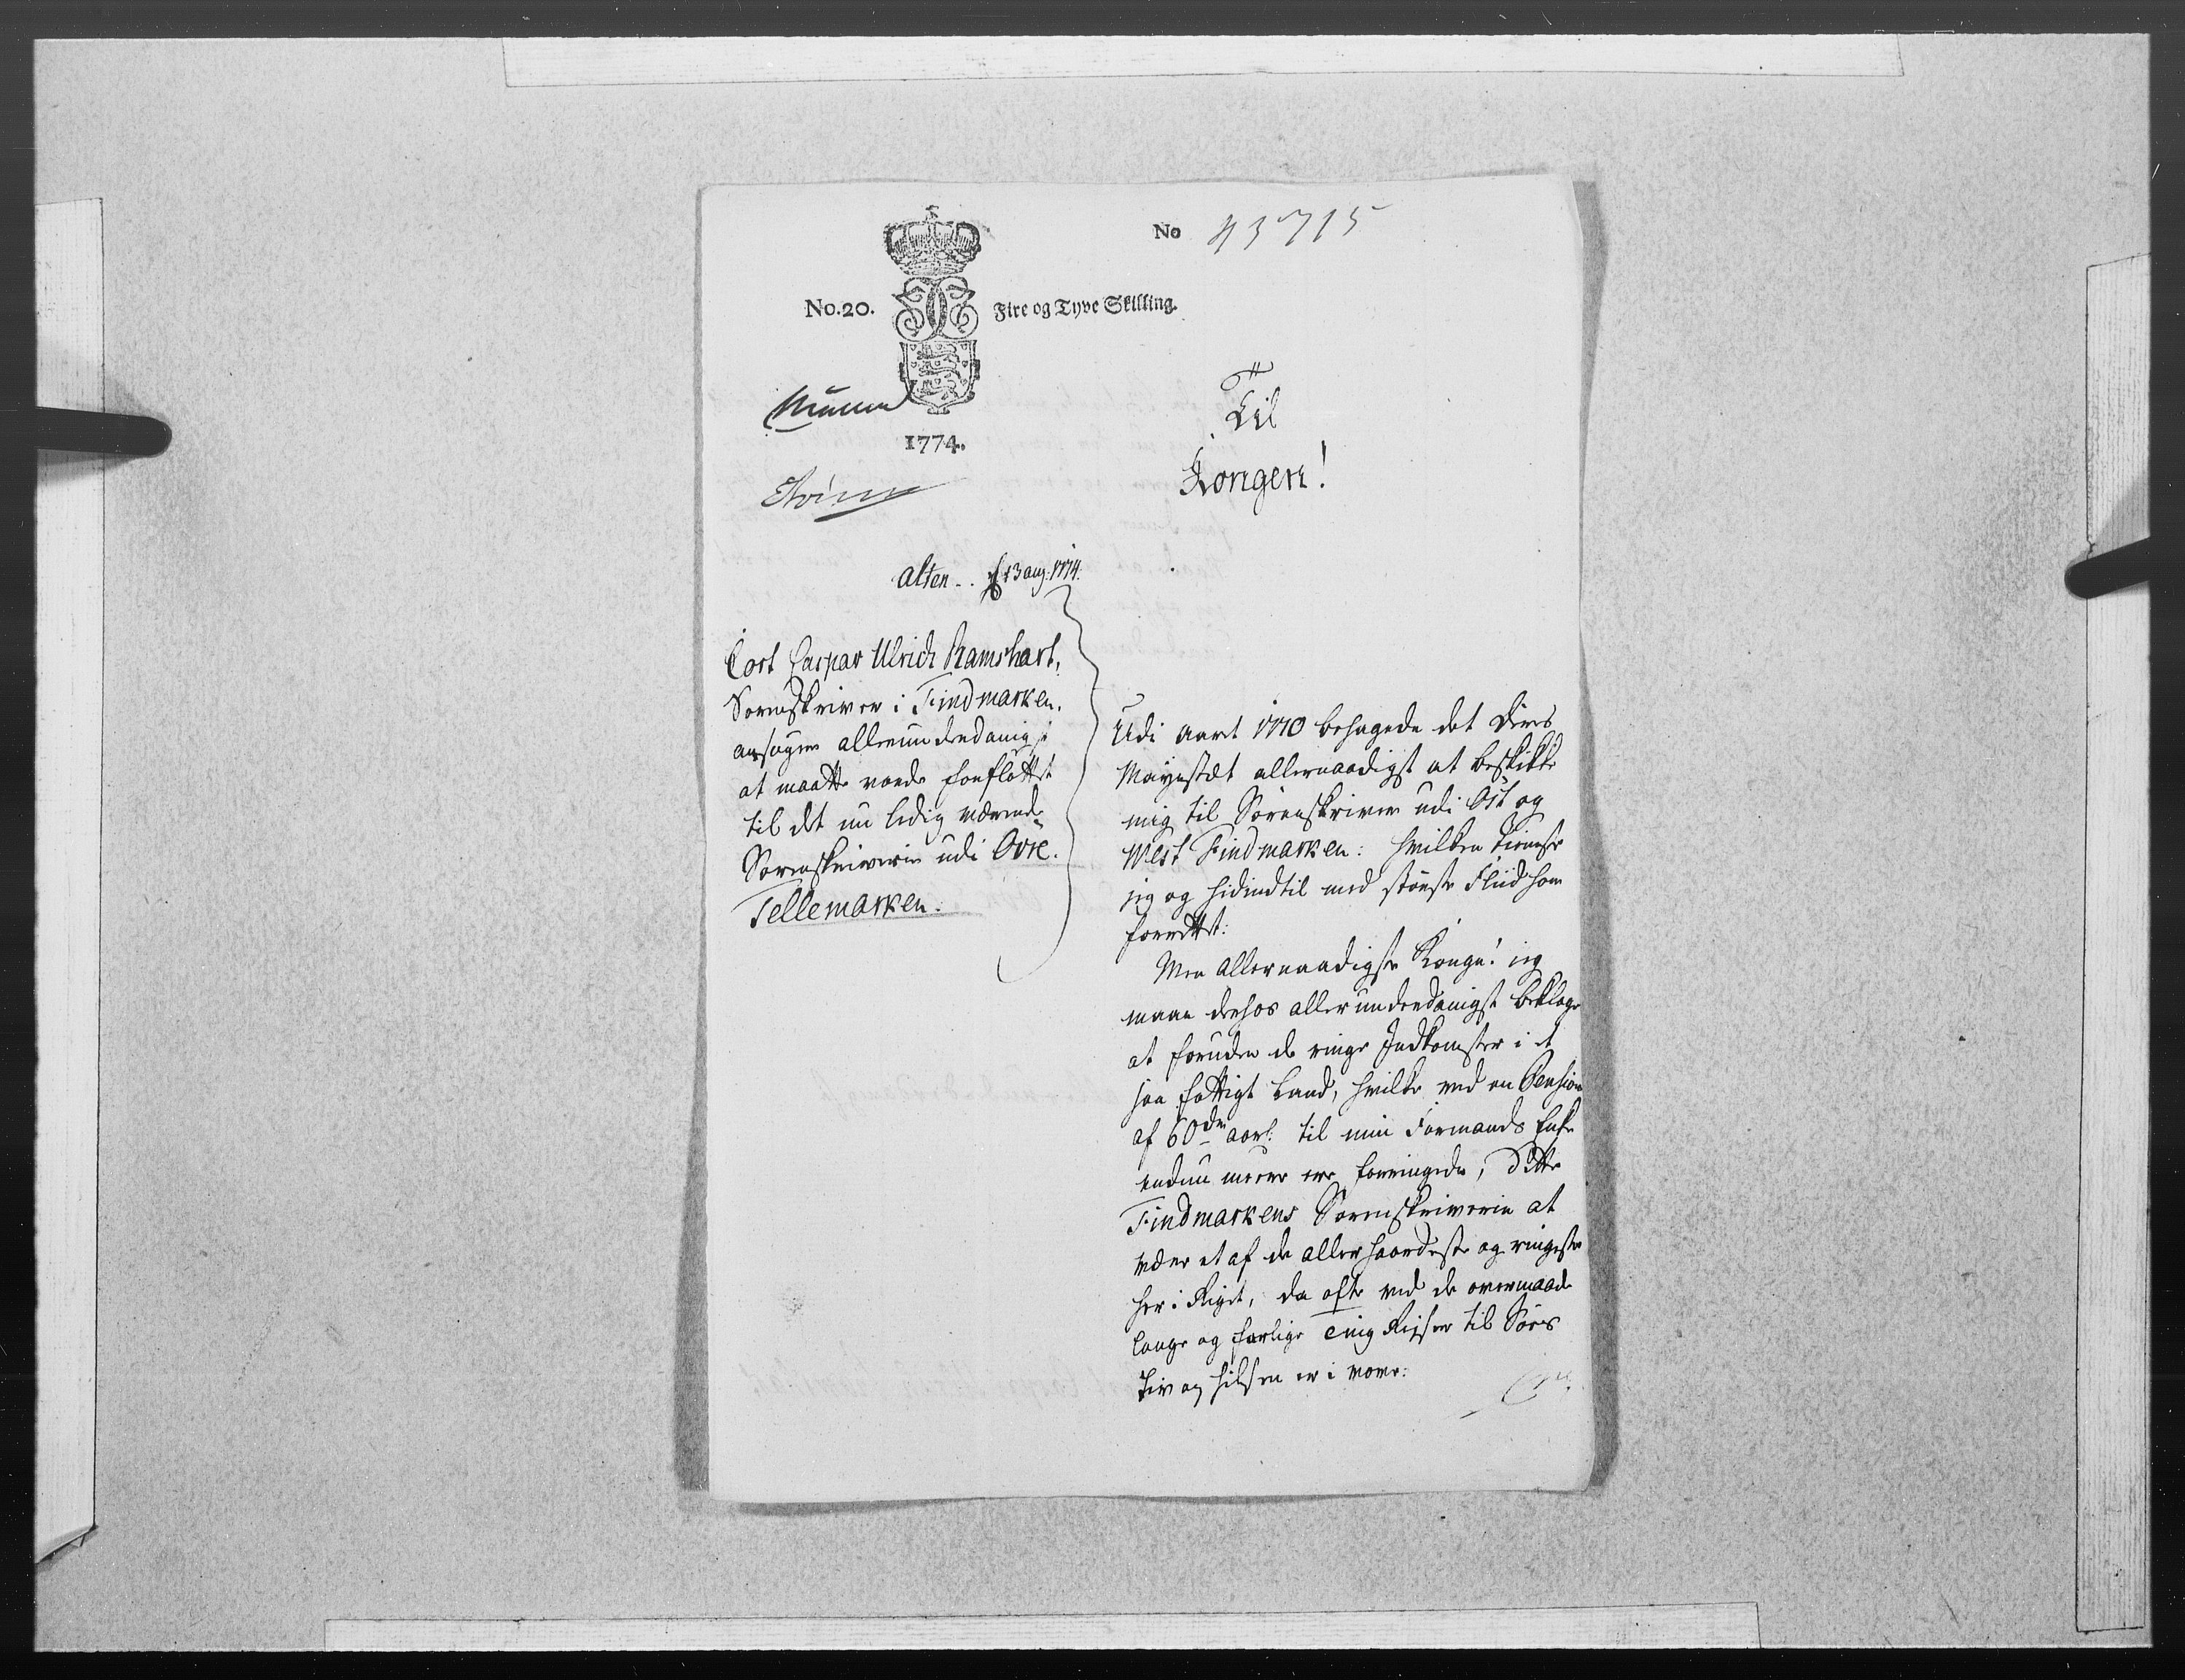 No 43715
No. 20. Fire og Tyve Skilling.
1774.
Til
Kongen!
Alten .. d 13 aug: 1774.
Cort Caspar Ulrich Ramshart,
Sorenskriver i Findmarken.
ansøger allerunderdanigst
at maatte vorde forflöttet
til det nu ledig værende
Sorenskriverie udi Ovre.
Tellemarken.
Udi Aaret 1770 behagede det Deres
Mayestæt allernaadigst at beskikke
mig til Sörenskriver udi Ost og
West Findmarken: hvilken tieneste
jeg og hidindtil med störste Fliid har
forrettet:
Men Allernaadigste Konge! jeg
maae derhos allerunderdanigst beklage
at foruden de ringe Indkomster i et
saa fattigt Land, hvilke ved en Pension
af 60 dr aarl: til min Formands Enke
endnu meere ere forringede, dette
Findmarkens Sorenskriverie at
være et af de allerhaardeste og ringeste
her i Riget, da ofte ved de overmaade
lange og farlige Ting Rejser til Söes
Liv og Helsen er i vove: